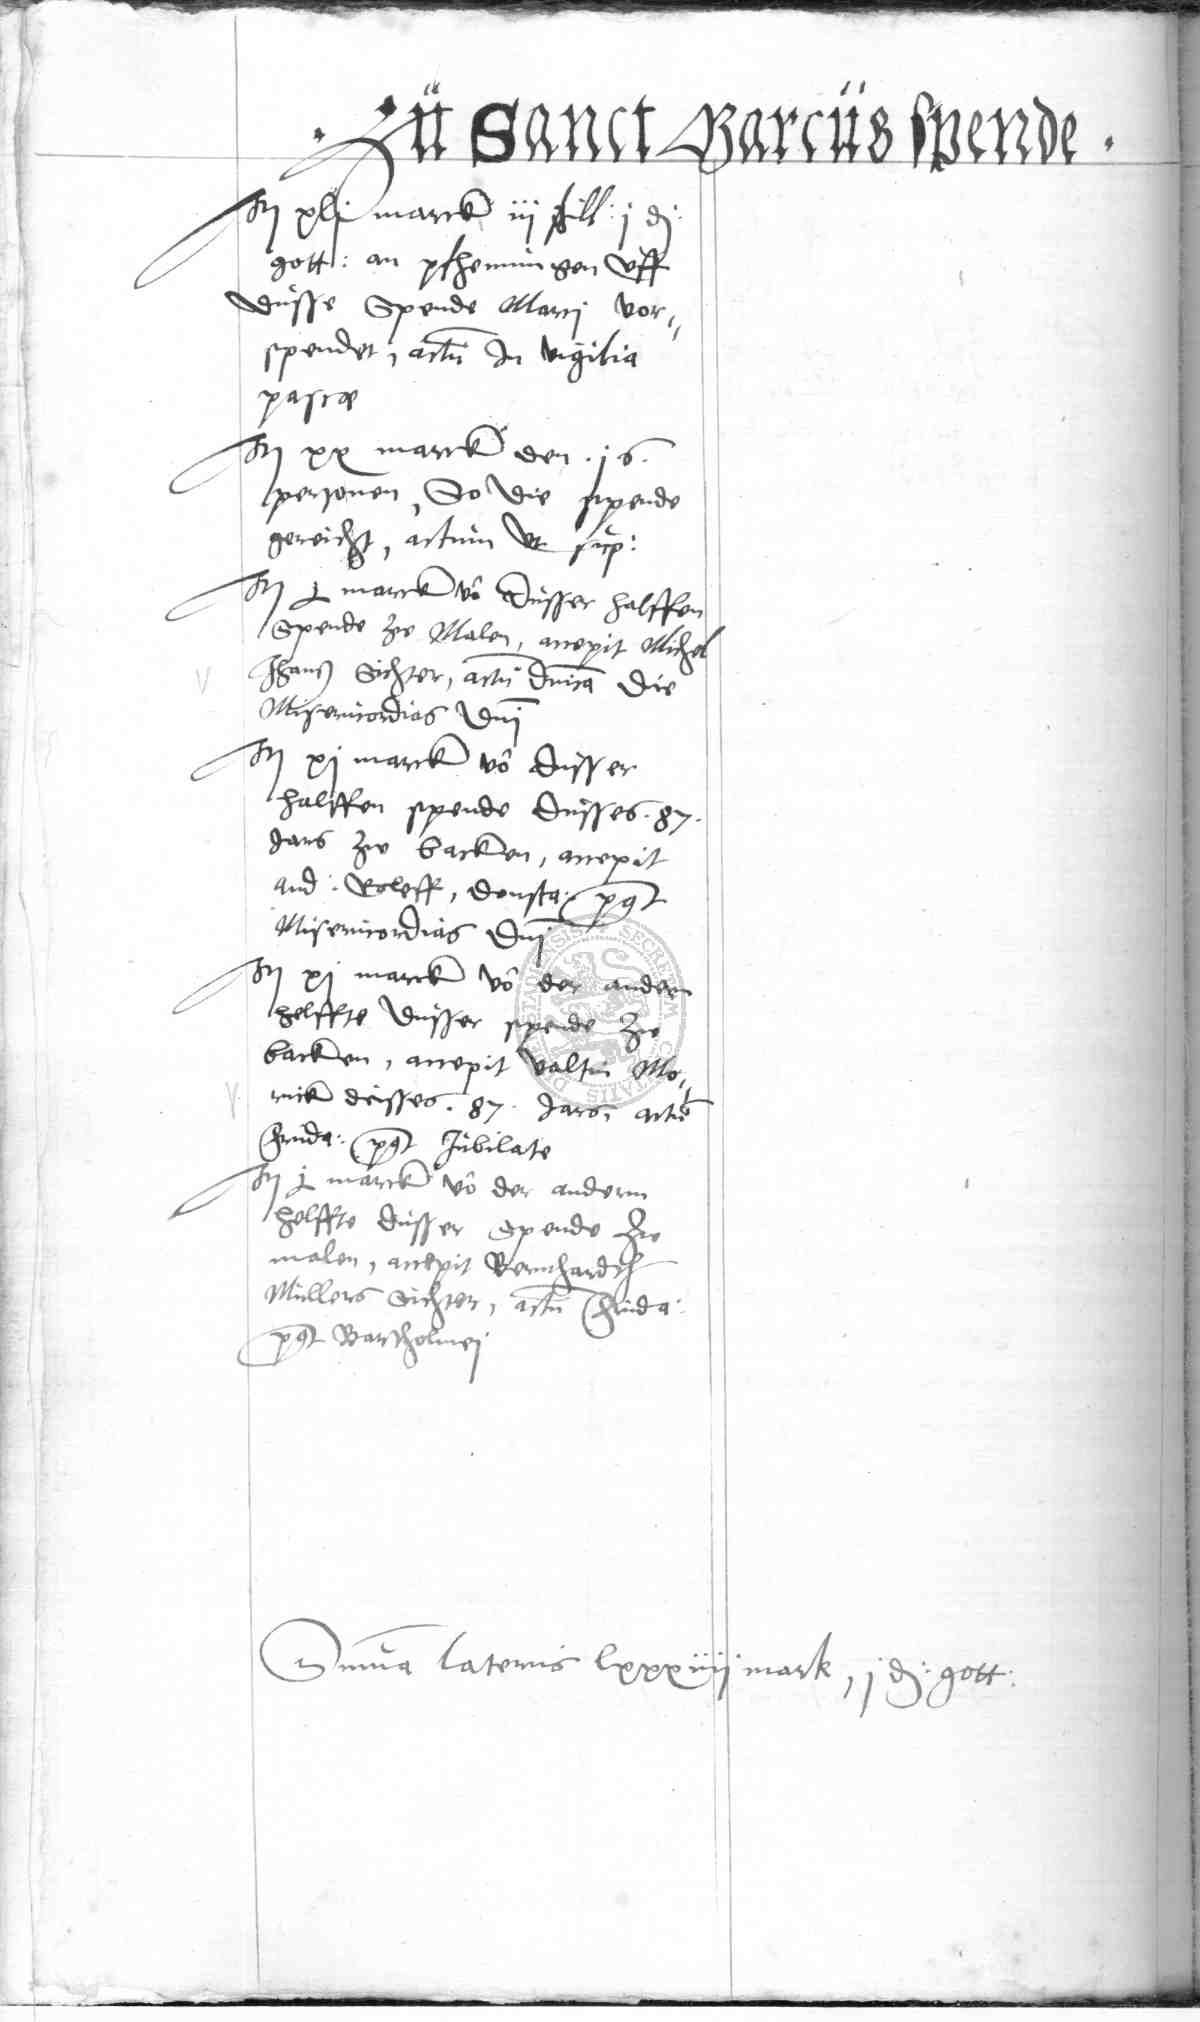 · Zü Sanct Marcüs spende ·
It xlj marck iij schill: j dj:
gott: an pfhenningen vff
düsse Spende Marcj vor-
spendet, actū In vigilia
pasce
It xx marck den · 16 ·
personen, So die spende
gereicht, actum vt sup:
It marck vō düsser halffen
Spende zw Malen, accepit Michel
Hans Sichter, actū dnica die
Misericordias Dnj
It xj marck vō düsser
halffen spende düsses · 87 ·
Jars zw backen, accepit
and: Roleff, donsta: post
Misericordias Dnj
It xj marck vō der andern
helffte düsser spende zw
backen, accepit Valtin Mo-
rick düsses · 87 · Jars, actū
frida: post Jubilate
It marck vō der andernn
helffte düsser Spende zw
malen, accepit Bernhardt
Müllers Sichter, actū frida:
post Bartholmej
Suma lateris lxxxiiij mark, j dj: gott:
SECRETUM